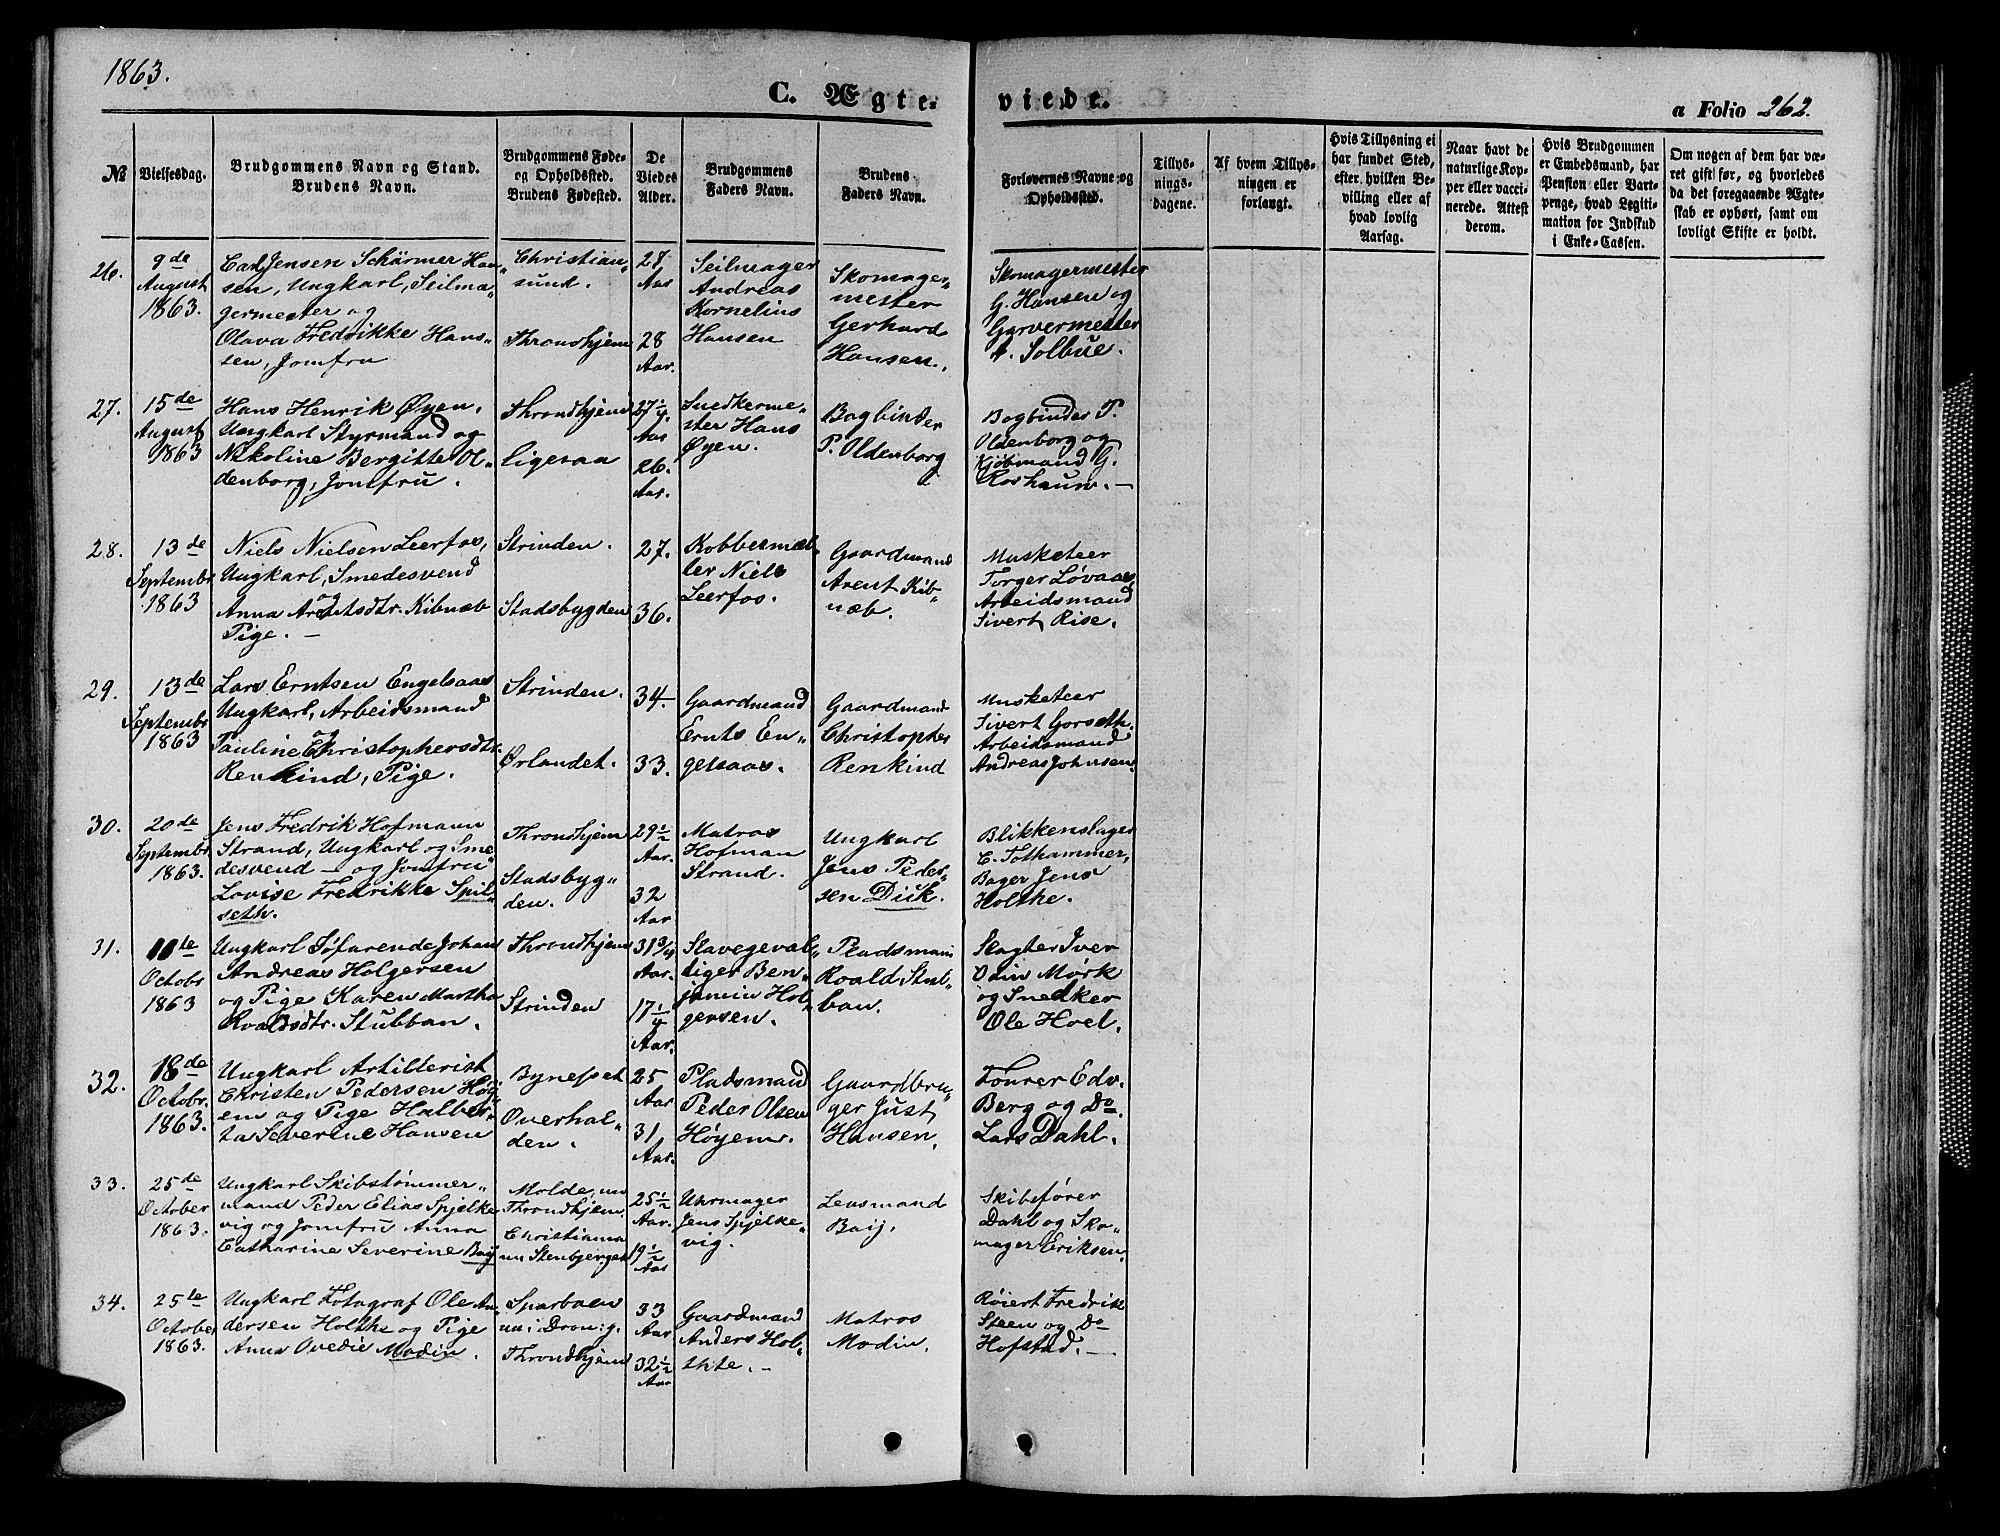 1863.
C. Ægteviede.
a Folio 262.
№
Vielsesdag.
Brudgommens Navn og Stand.
Brudens Navn.
Brudgommens Føde-
og Opholdssted.
Brudens Fødested.
De
Viedes
Alder.
Brudgommens
Faders Navn.
Brudens
Faders Navn.
Forlovernes Navne og
Opholdssted.
Tillys-
nings-
dagene.
Af hvem Tillys-
ningen er
forlangt.
Hvis Tillysning ei
har fundet Sted,
efter hvilken Be-
villing eller af
hvad lovlig
Aarsag.
Naar havt de
naturlige Kop-
per eller vacci-
nerede. Attest
derom.
Hvis Brudgommen
er Embedsmand, har
Pension eller Vart-
penge, hvad Legiti-
mation for Indskud
i Enke-Cassen.
Om nogen af dem har væ-
ret gift før, og hvorledes
da det foregaaende Ægte-
skab er ophørt, samt om
lovligt Skifte er holdt.
26.
9de
August
1863.
Carl Jensen Schärmer Han-
sen, Ungkarl, Seilma-
germester og
Olava Fredrikke Hans-
sen, Jomfru
Christian-
sund.
Throndhjem
28
Aar
28
Aar.
Seilmager
Andreas
Kornelius
Hansen
Skomager-
mester
Gerhard
Hansen.
Skomagermester
G. Hansen og
Garvermester
A. Solbue.
27.
15de
August
1863
Hans Henrik Øyen,
Ungkarl Styrmand og
Nikoline Bergitte Ol-
denborg, Jomfru.
Throndhjem
ligesaa
27 1/4
Aar
26.
Aar.
Snedkerme-
ster Hans
Øyen.
Bogbinder
P. Oldenborg
Bogbinder P.
Oldenborg og
Kjøbmand G.
Roshauw. —
28.
13de
Septembr
1863
Niels Nielsen Leerfos,
Ungkarl, Smedesvend
og
Anna Arentsdtr. Kibnæb
Pige. —
Strinden.
Stadsbygden
27.
36.
Kobbermæs-
ter Niels
Leerfos.
Gaardmand
Arent Kib-
næb.
Musketeer
Torger Løvaas,
Arbeidsmand
Sivert Rise.
29.
13de
Septembr
1863
Lars Erntsen Engelsaas
Ungkarl, Arbeidsmand
og
Pauline Christophersdtr.
Renkind, Pige.
Strinden.
Ørlandet.
34.
33.
Gaardmand
Ernts En-
gelsaas.
Gaardmand
Christopher
Renkind
Musketeer
Sivert Gorseth.
Arbeidsmand
Andreas Johnsen.
30.
20de
Septembr
1863.
Jens Fredrik Hofmann
Strand, Ungkarl og Sme-
desvend — og Jomfru
Lovise Fredrikke Spil-
seth.
Throndhjem
Stadsbyg-
den.
29 1/2
Aar.
32
Aar
Matros
Hofman
Strand.
Ungkarl
Jens Peder-
sen Dick.
Blikkenslager
C. Tothammer,
Bager Jens
Holthe.
31.
11te
Octobr
1863
Ungkarl Søfarende Johan
Andreas Holgersen
og Pige Karen Martha
Roaldsdtr. Stubban.
Throndhjem
Strinden
31 3/4
Aar.
17 1/4
Aar.
Slavegeval-
tiger Ben-
jamin Hol-
gersen.
Pladsmand
Roald Stub-
ban.
Slagter Iver
Odin Mørk
og Snedker
Ole Hoel.
32.
18de
Octobr.
1863.
Ungkarl Artillerist
Christen Pedersen Høy-
em og Pige Halber-
ta Severine Hansen
Bynesset
Overhal-
den.
25
Aar
31
Aar.
Pladsmand
Peder Olsen
Høyem.
Gaardbru-
ger Just
Hansen.
Fourer Edv.
Berg og Do.
Lars Dahl.
33.
25de
October
1863.
Ungkarl Skibstømmer-
mand Peder Elias Spjelke-
vig og Jomfru Anna
Catharine Severine Baij
Molde, nu
Throndhjem.
Christiania
nu Stenbjerget
25 1/2
Aar.
19 1/2
Aar
Uhrmager
Jens Spjelke-
vig.
Lensmand
Baij.
Skibsfører
Dahl og Sko-
mager Eriksen.
34.
25te
October
1863.
Ungkarl Fotograf Ole An-
dersen Holthe og Pige
Anna Ovedie Modin.
Sparboen
nu i Dronng.
Throndhjem
33
Aar
32 1/2
Aar
Gaardmand
Anders Hol-
thte. —
Matros
Modin.
Røiert Fredrik
Steen og Do
Hofstad. —